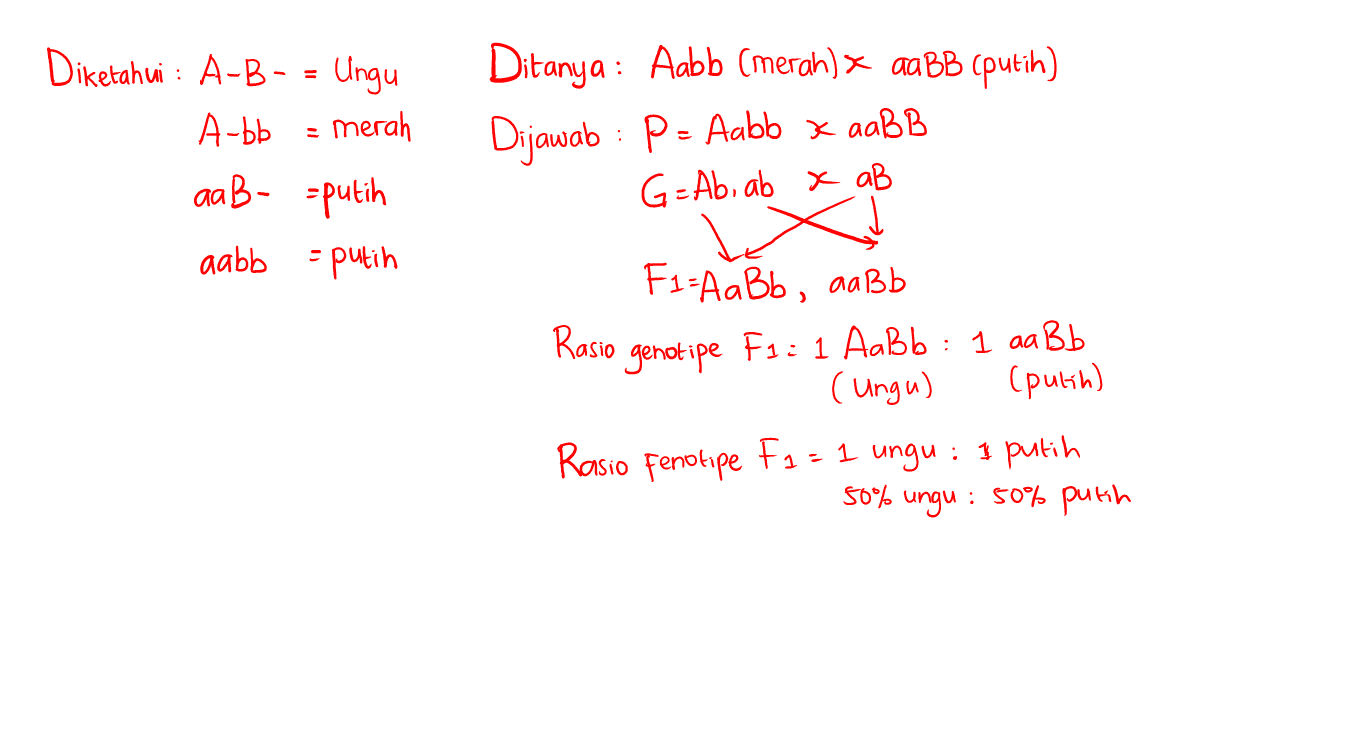 Diketahui : A-B- = Ungu
A-bb = merah
aaB- = putih
aabb = putih
Ditanya : Aabb (merah) x aaBB (putih)
Dijawab : P = Aabb x aaBB
G = Ab, ab x aB
F1 = AaBb, aaBb
Rasio genotipe F1 = 1 AaBb : 1 aaBb
(Ungu) (putih)
Rasio Fenotipe F1 = 1 ungu : 1 putih
50% ungu : 50% putih